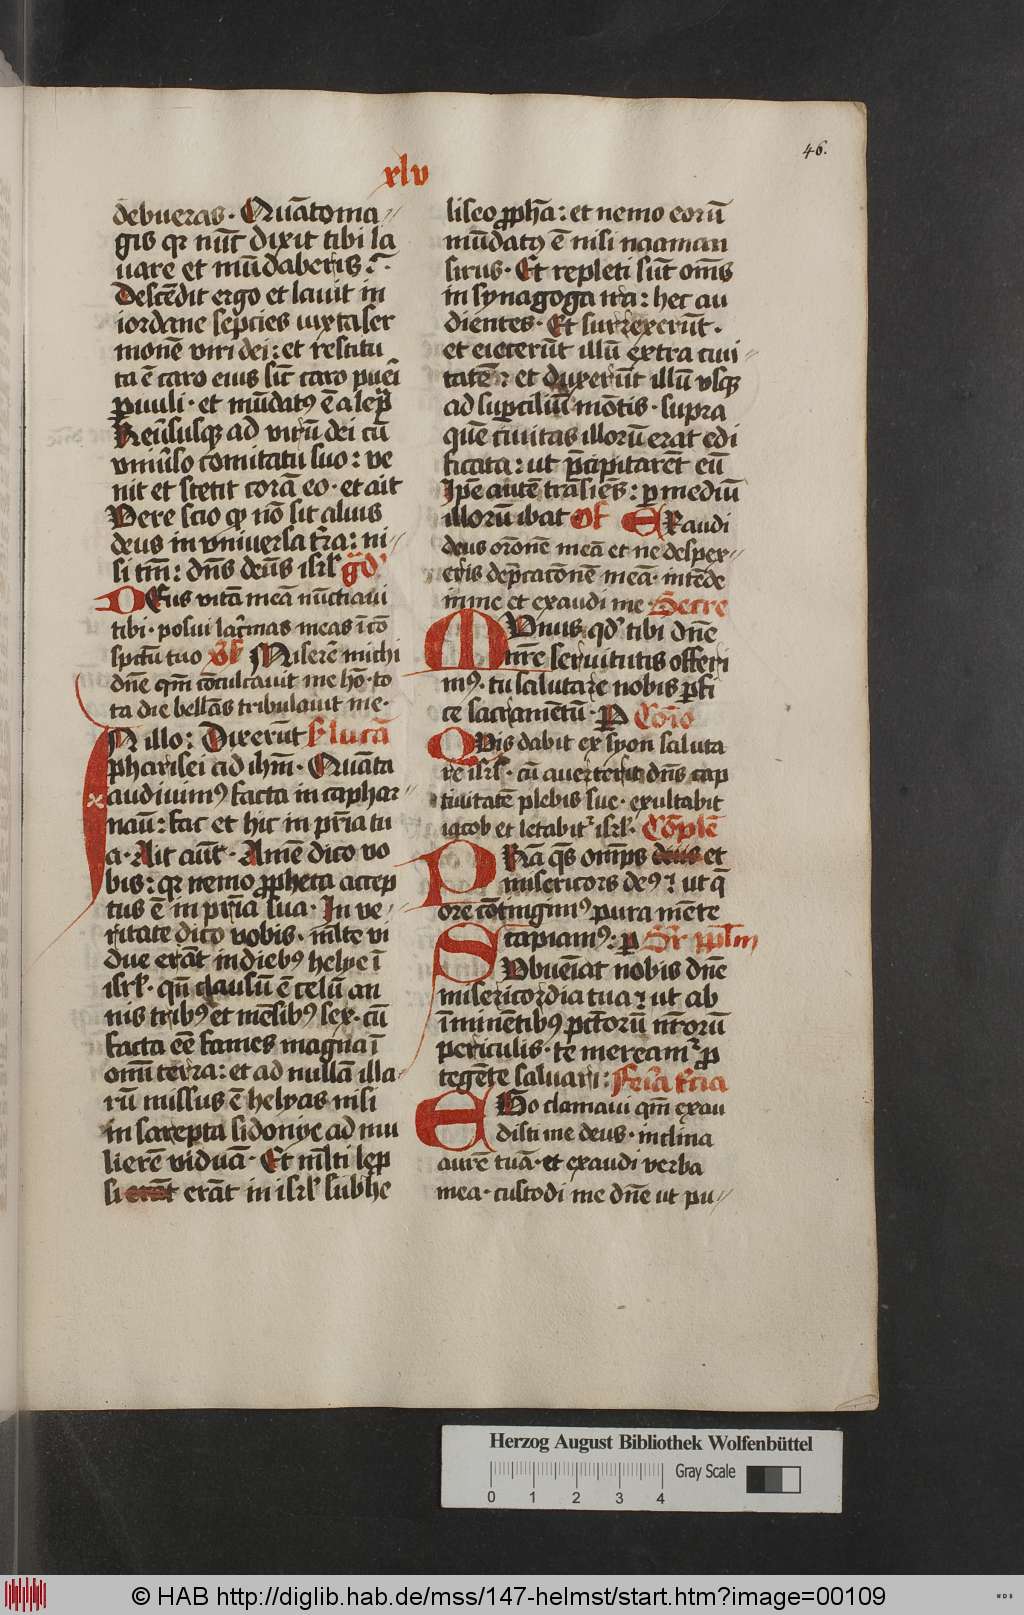 46.
xlv
debueras. Quāto ma⸗
gis qꝛ nūc dixit tibi la
uare et mūdaberis?
Descēdit ergo et lauit in
iordane sepcies iuxta ser
monē viri dei: et restitu
ta ē caro eius sic̄ caro pueꝛ̄i
ꝑuuli. et mūdatꝰ ē a lepͣ
Reuersusqꝫ ad virū dei cū
vniu̾so comitatu suo: ve
nit et stetit corā eo. et ait
Vere scio qꝙ nō sit alius
deus in vniuersa tr̄a: ni⸗
si tm̄: dn̄s deūs isrl̄ gͣd̾
DEus vitā meā nūctiaui
tibi. posui lac̾mas meas ī cō
spc̄tu tuo v̾s̄ Miserē michi
dn̄e qm̄ cōculcauit me hō. to
ta die bellās tribulauit me.
IN illo: Dixerūt s̾ lucā
pharisei ad ihm̄. Quāta
audiuimꝰ facta in caphar⸗
naū: fac et hic in pr̄ia tu
a. Ait aūt. Amē dico vo
bis: qꝛ nemo ꝓpheta accep
tus ē in pr̄ia sua. In ve⸗
ritate dico vobis. ml̄te vi
due erāt in diebꝰ helye ī
isrl̄. qn̄ clausū ē celū an
nis tribꝰ et mēsibꝰ sex. cū
facta eē fames magna ī
omī terra: et ad nullā illa⸗
rū missus ē helyas nisi
in sarepta sidonye ad mu
lierē viduā. Et ml̄ti lepͦ
si erāt erāt in isrl̄ sub he
liseo ꝓphā: et nemo eorū
mūdatꝰ ē nisi naaman
sirus. Et repleti sūt om̄s
in synagoga ira: hec au
dientes. Et surrexerūt.
et eiecerūt illū extra ciui⸗
tatē: et duxerūt illū vsqꝫ
ad suꝑciliū mōtis. supra
quē ciuitas illorū erat edi
ficata: ut p̄cipitarēt eū
Ip̄e autē trāsiēs: ꝑ mediū
illorū ibat Of̄ ERaudi
deus oronē meā et ne despex⸗
eris dep̄catonē meā. intēde
in me et exaudi me. Secre
MVnus qd̾ tibi dn̄e
nr̄e seruitutis offeri
mꝰ. tu salutare nobis ꝑfi
ce sacramētū. P̱ Cōio
QVis dabit ex syon saluta
re isrl̄. cū auerterit dn̄s cap
tiuitatē plebis sue. exultabit
iacob et letabit᷑ isrl̄. Cōplē
PRā qs̄ omp̄s deus et
misericors deꝰ: ut qͣ
ore cōtingimꝰ pura mēte
capiamꝰ: ꝑ Sr̄ ppl̄m
SVbueīat nobis dn̄e
misericordia tua: ut ab
īminētibꝰ pc̄torū nr̄orū
periculis. te mereamᷣ ꝓ
tegēte saluari: Feria t̾cia
EGo clamaui qm̄ exau
disti me deus. inclina
aurē tuā. et exaudi verba
mea. custodi me dn̄e ut pu⸗
Herzog August Bibliothek Wolfenbüttel
Gray Scale
0 1 2 3 4
© HAB http://diglib.hab.de/mss/147-helmst/start.htm?image=00109